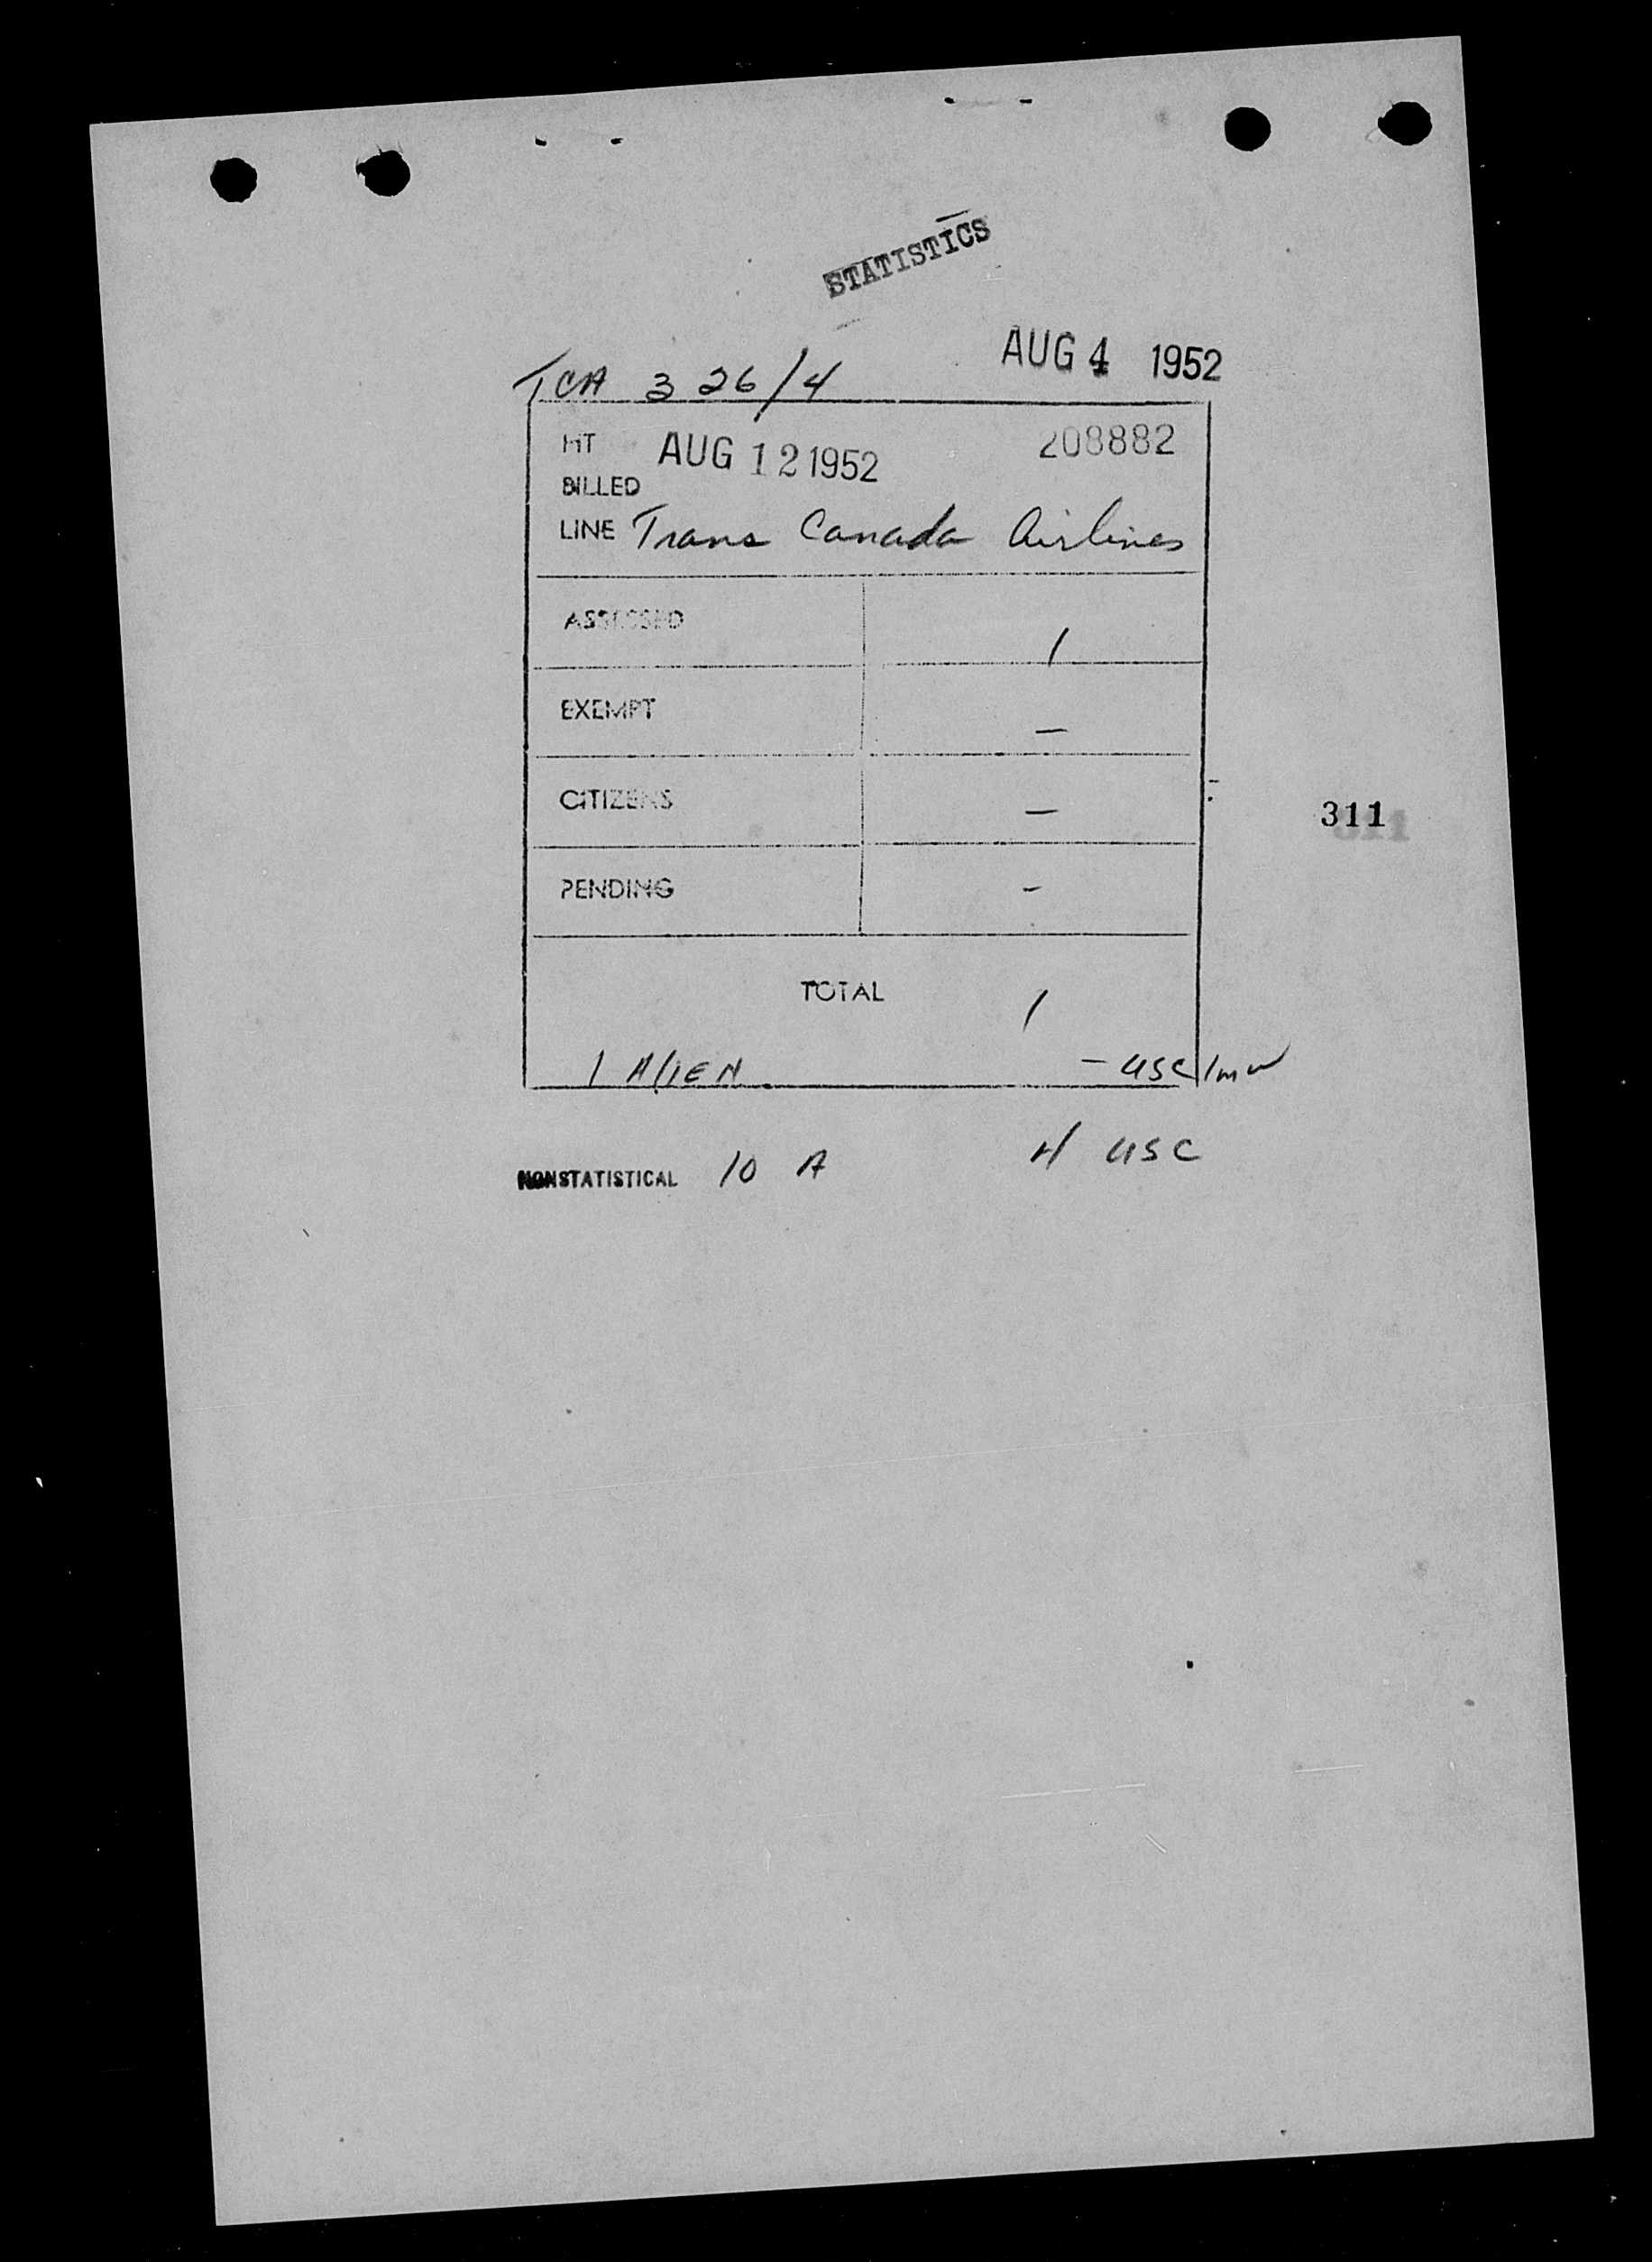 STATISTICS
AUG 4 1952
TCA 326/4
HT AUG 12 1952 208882
BILLED
LINE Trans Canada Airlines
ASSESSED 1
EXEMPT —
CITIZENS —
PENDING -
TOTAL 1
311
1 AlIEN — USC/mw
NONSTATISTICAL 10 A 4 USC